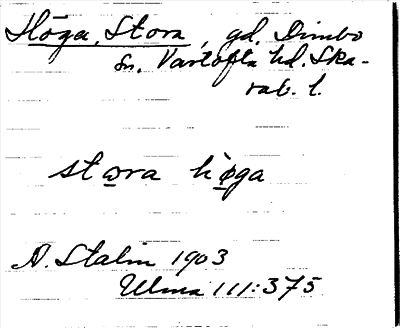 Höga, Stora, gd. Dimbo
sn. Vartofta hd. Ska-
rab. l.
stora höga
A. Stalin 1903
Ulma 111:375